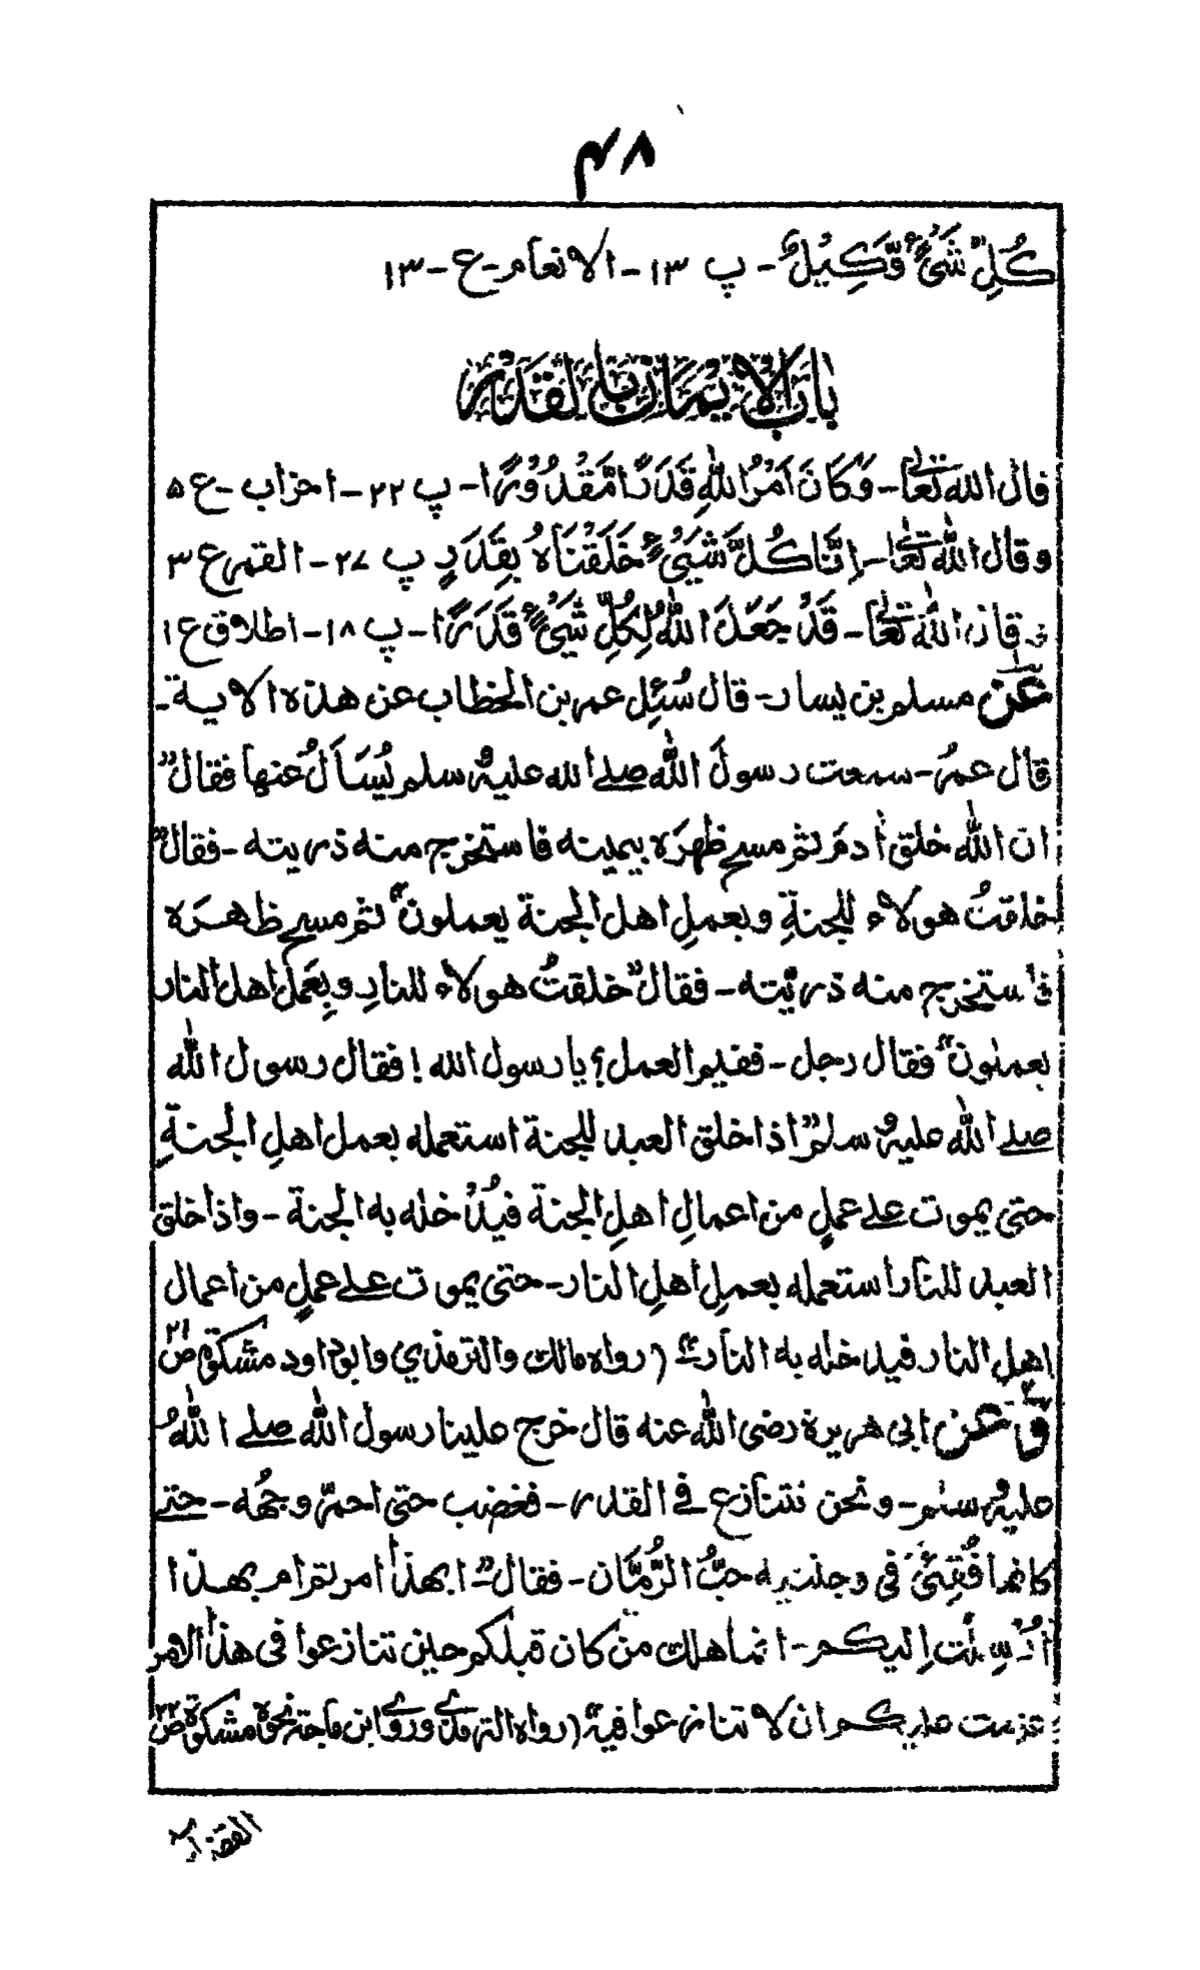 ۴۸
كُلِّ شَيْءٍ وَّكِيْلٌ - پ ۱۳ - الانعام - ع - ۱۳
باب الايمان بالقدر
قال الله تعالى - وَكَانَ اَمْرُ اللهِ قَدَرًا مَّقْدُوْرًا - پ ۲۲ - احزاب - ع ۵
وقال الله تعالى - اِنَّا كُلَّ شَيْءٍ خَلَقْنَاهُ بِقَدَرٍ پ ۲۷ - القمر ع ۳
وقال الله تعالى - قَدْ جَعَلَ اللهُ لِكُلِّ شَيْءٍ قَدَرًا - پ ۱۸ - اطلاق ع ۱
عن مسلم بن يسار - قال سُئِل عمر بن الخطاب عن هذه الاية -
قال عمرُ - سمعت رسولَ الله صلے الله عليه وسلم يُسَأَلُ عنها فقال"
ان الله خلق اٰدمَ ثم مسح ظهرَه بيمينه فاستخرج منه ذريته - فقال"
خلقتُ هولاء للجنةِ وبعملِ اهل الجنة يعملون" ثم مسح ظهرَه
فاستخرج منه ذريّته - فقال" خلقتُ هولاء للنارِ وبِعَملِ اهل النار
يعملون" فقال رجل - ففيم العمل؟ يا رسول الله! فقال رسول الله
صلے الله عليه وسلم" اذا خلق العبد للجنة استعمله بعمل اهلِ الجنةِ
حتى يموت علے عملٍ من اعمالِ اهلِ الجنة فيُدْخله به الجنة - واذا خلق
العبد للنار استعمله بعملِ اهلِ النار - حتى يموت علے عملٍ من اعمال
اهلِ النار فيدخله به النار" (رواه مالك والترمذي وابوداود مشكوة ص ۲۱
وعن ابى هريرة رضى الله عنه قال خرج علينا رسول الله صلے اللهُ
عليه وسلم - ونحن نتنازع فے القدر - فغضب حتى احمرّ وجهُه - حتے
كانما فُقِئَ فى وجنتيه حبُّ الرُّمَّان - فقال" ابهذا امرتم ام بهذا
اُرْسِلْت اِليكم - انما هلك من كان قبلكم حين تنازعوا فى هذا الامر
عزمت عليكم ان لا تنازعوا فيه" (رواه الترمذى وروى ابن ماجة نحوه مشكوة ص ۲۲